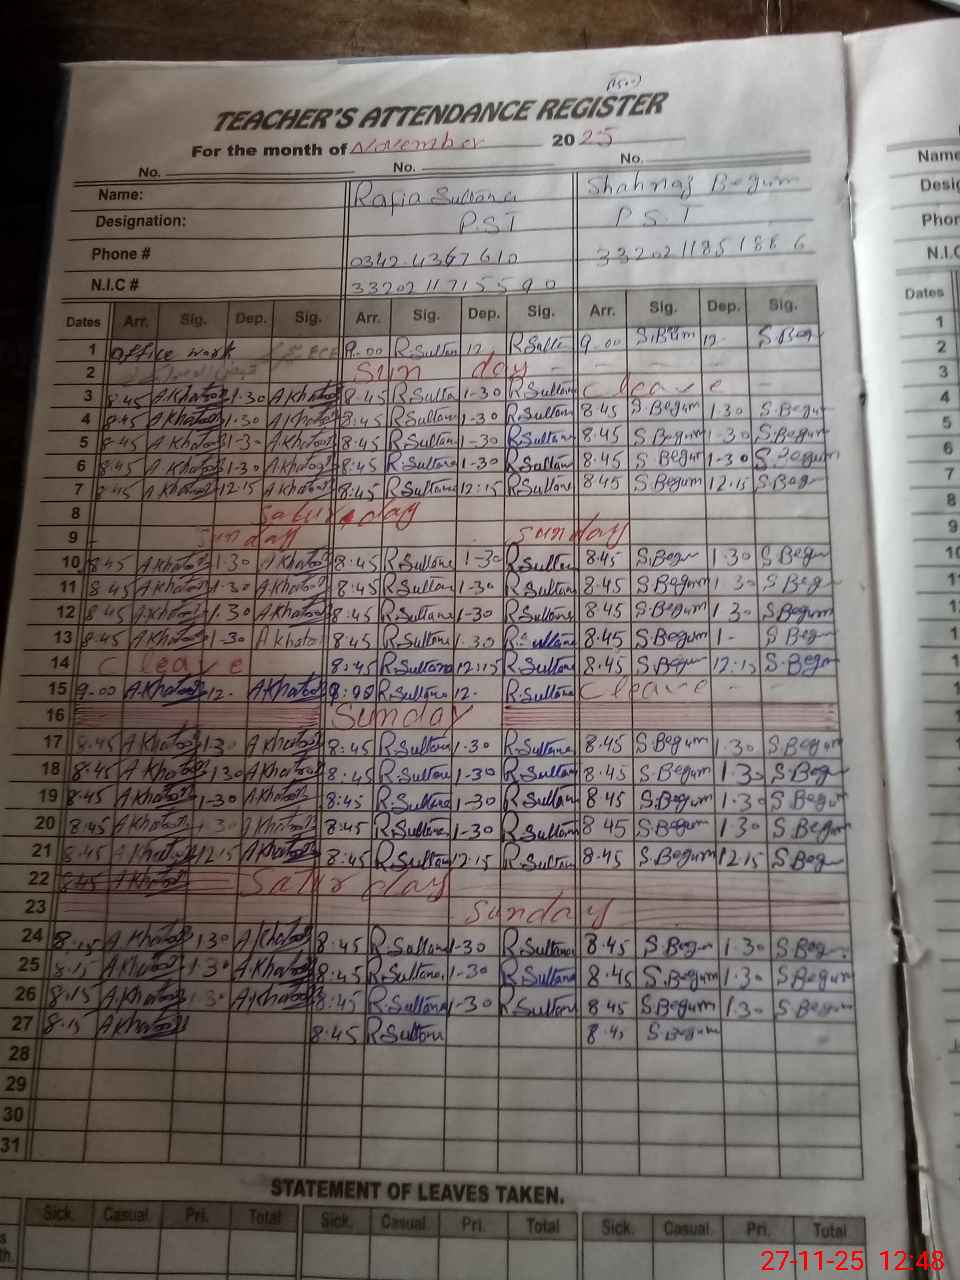 TEACHER'S ATTENDANCE REGISTER
For the month of November 2025
No. No. No.
Name: Rafia Sultana Shahnaz Begum
Designation: P.S.T P.S.T
Phone # 0342-4367610 33202 1185188 6
N.I.C # 33202 117155 90
Dates Arr. Sig. Dep. Sig. Arr. Sig. Dep. Sig. Arr. Sig. Dep. Sig.
1 Office work 9-00 R.Sultan 12 9-00 S.Begum 12- S.Beg
2 Sun day
3 8:45 A.Khatoon 1-30 A.Khatoon 8-45 R.Sulta 1-30 R.Sultan C leave
4 8:45 A.Khatoon 1-30 A.Khatoon 8:45 R.Sultan 1-30 R.Sultan 8.45 S.Begum 1.30 S.Begum
5 8:45 A.Khatoon 1-30 A.Khatoon 8:45 R.Sultan 1-30 R.Sultan 8.45 S.Begum 1-30 S.Begum
6 8:45 A.Khatoon 1-30 A.Khatoon 8:45 R.Sultana 1-30 R.Sultan 8.45 S.Begum 1-30 S.Begum
7 8:45 A.Khatoon 12:15 A.Khatoon 8:45 R.Sultana 12:15 R.Sultana 8.45 S.Begum 12.15 S.Beg
8 Saturday
9 Sunday Sunday
10 8:45 A.Khatoon 1.30 A.Khatoon 8:45 R.Sultana 1-30 R.Sultan 8.45 S.Begum 1.30 S.Begum
11 8.45 A.Khatoon 1.30 A.Khatoon 8:45 R.Sultan 1-30 R.Sultan 8.45 S.Begum 1 30 S.Beg
12 8.45 A.Khatoon 1.30 A.Khatoon 8:45 R.Sultana 1-30 R.Sultan 8.45 S.Begum 1 30 S.Begum
13 8:45 A.Khatoon 1-30 A Khato 8:45 R.Sultana 1.30 R.Sultana 8.45 S.Begum 1- S Beg
14 C leave 8:45 R.Sultana 12:15 R.Sultan 8.45 S.Begum 12:15 S.Begum
15 9-00 A.Khatoon 12- A.Khatoon R.Sultan 12- R.Sultana C leave
16 Sunday
17 8:45 A.Khatoon 1.30 A.Khatoon 8:45 R.Sultana 1-30 R.Sultana 8.45 S.Begum 1.30 S.Begum
18 8:45 A.Khatoon 1.30 A.Khatoon 8:45 R.Sultana 1-30 R.Sultan 8.45 S.Begum 1.30 S.Beg
19 8:45 A.Khatoon 1-30 A.Khatoon 8:45 R.Sultana 1-30 R.Sultan 8 45 S.Begum 1.30 S.Begum
20 8:45 A.Khatoon 1.30 A.Khatoon 8:45 R.Sultana 1-30 R.Sultan 8 45 S.Begum 1.30 S.Begum
21 8:45 A.Khatoon 12:15 A.Khatoon 8:45 R.Sultan 12.15 R.Sultan 8.45 S.Begum 12.15 S.Beg
22 8:45 A.Khatoon Saturday
23 Sunday
24 8.15 A.Khatoon 1.30 A.Khatoon 8.45 R.Sultana 1-30 R.Sultana 8.45 S.Begum 1.30 S.Beg
25 8.15 A.Khatoon 1.30 A.Khatoon 8:45 R.Sultana 1-30 R.Sultana 8.45 S.Begum 1.30 S.Begum
26 8.15 A.Khatoon 1.30 A.Khatoon 8:45 R.Sultana 1-30 R.Sultan 8.45 S.Begum 1.30 S.Begum
27 8.15 A.Khatoon 8:45 R.Sultan S.Begum
28
29
30
31
STATEMENT OF LEAVES TAKEN.
Sick. Casual. Pri. Total Sick. Casual. Pri. Total Sick. Casual. Pri. Total
Name
Phon
N.I.C
Dates
27-11-25 12:48